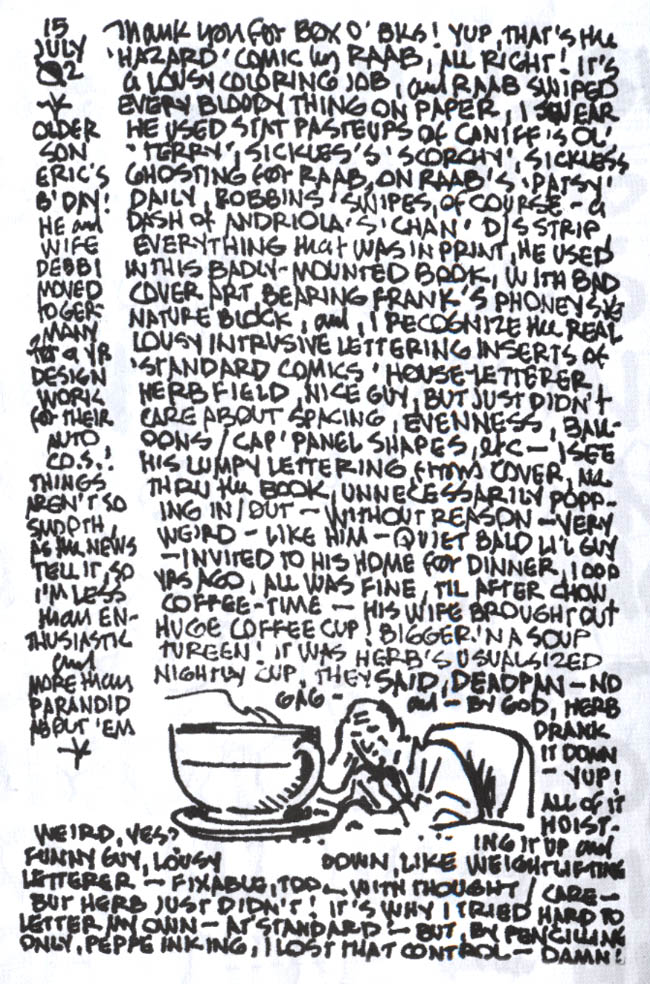 15
JULY
02
OLDER
SON
ERIC'S
B'DAY!
HE and
WIFE
DEBBI
MOVED
TO GER-
MANY
for a YR
DESIGN
WORK
for THEIR
AUTO
CO.S.!
THINGS
AREN'T SO
SMOOTH,
AS the NEWS
TELL IT, SO
I'M LESS
than EN-
THUSIASTIC
and
MORE than
PARANOID
ABOUT 'EM
Thank you for BOX O' BKS! YUP, THAT'S the
'HAZARD' COMIC by RAAB, ALL RIGHT! IT'S
a LOUSY COLORING JOB, and RAAB SWIPED
EVERY BLOODY THING ON PAPER, I SWEAR
HE USED STAT PASTEUPS of CANIFF'S OL'
'TERRY', SICKLES'S 'SCORCHY', SICKLES
GHOSTING for RAAB, ON RAAB'S 'PATSY'
DAILY, ROBBINS SWIPES, OF COURSE - a
DASH of ANDRIOLA'S 'CHAN' D/S STRIP
EVERYTHING that WAS IN PRINT, HE USED
IN THIS BADLY-MOUNTED BOOK, WITH BAD
COVER ART BEARING FRANK'S PHONEY SIG
NATURE BLOCK, and, I RECOGNIZE the REAL
LOUSY INTRUSIVE LETTERING INSERTS of
'STANDARD COMICS' HOUSE-LETTERER,
HERB FIELD, NICE GUY, BUT JUST DIDN'T
CARE ABOUT SPACING, EVENNESS, BALL-
OONS / CAP' PANEL SHAPES, etc — I SEE
HIS LUMPY LETTERING from COVER, ALL
THRU the BOOK, UNNECESSARILY POPP-
ING IN/OUT — WITHOUT REASON — VERY
WEIRD — LIKE HIM — QUIET BALD LI'L GUY
— INVITED TO HIS HOME for DINNER, 1000
YRS AGO, ALL WAS FINE, TIL AFTER CHOW,
COFFEE-TIME — HIS WIFE BROUGHT OUT
HUGE COFFEE CUP! BIGGER'N A SOUP
TUREEN! IT WAS HERB'S USUAL SIZED
NIGHTLY CUP, THEY SAID, DEADPAN — NO
GAG — and — BY GOD, HERB
DRANK
IT DOWN
— YUP!
ALL OF IT
HOIST-
ING IT UP and
DOWN, LIKE WEIGHTLIFTING
WEIRD, YES?
FUNNY GUY, LOUSY
LETTERER — FIXABLE, TOO — WITH THOUGHT / CARE —
BUT HERB JUST DIDN'T! IT'S WHY I TRIED HARD TO
LETTER MY OWN — AT STANDARD — BUT, BY PENCILLING
ONLY, PEPPE INKING, I LOST THAT CONTROL — DAMN!